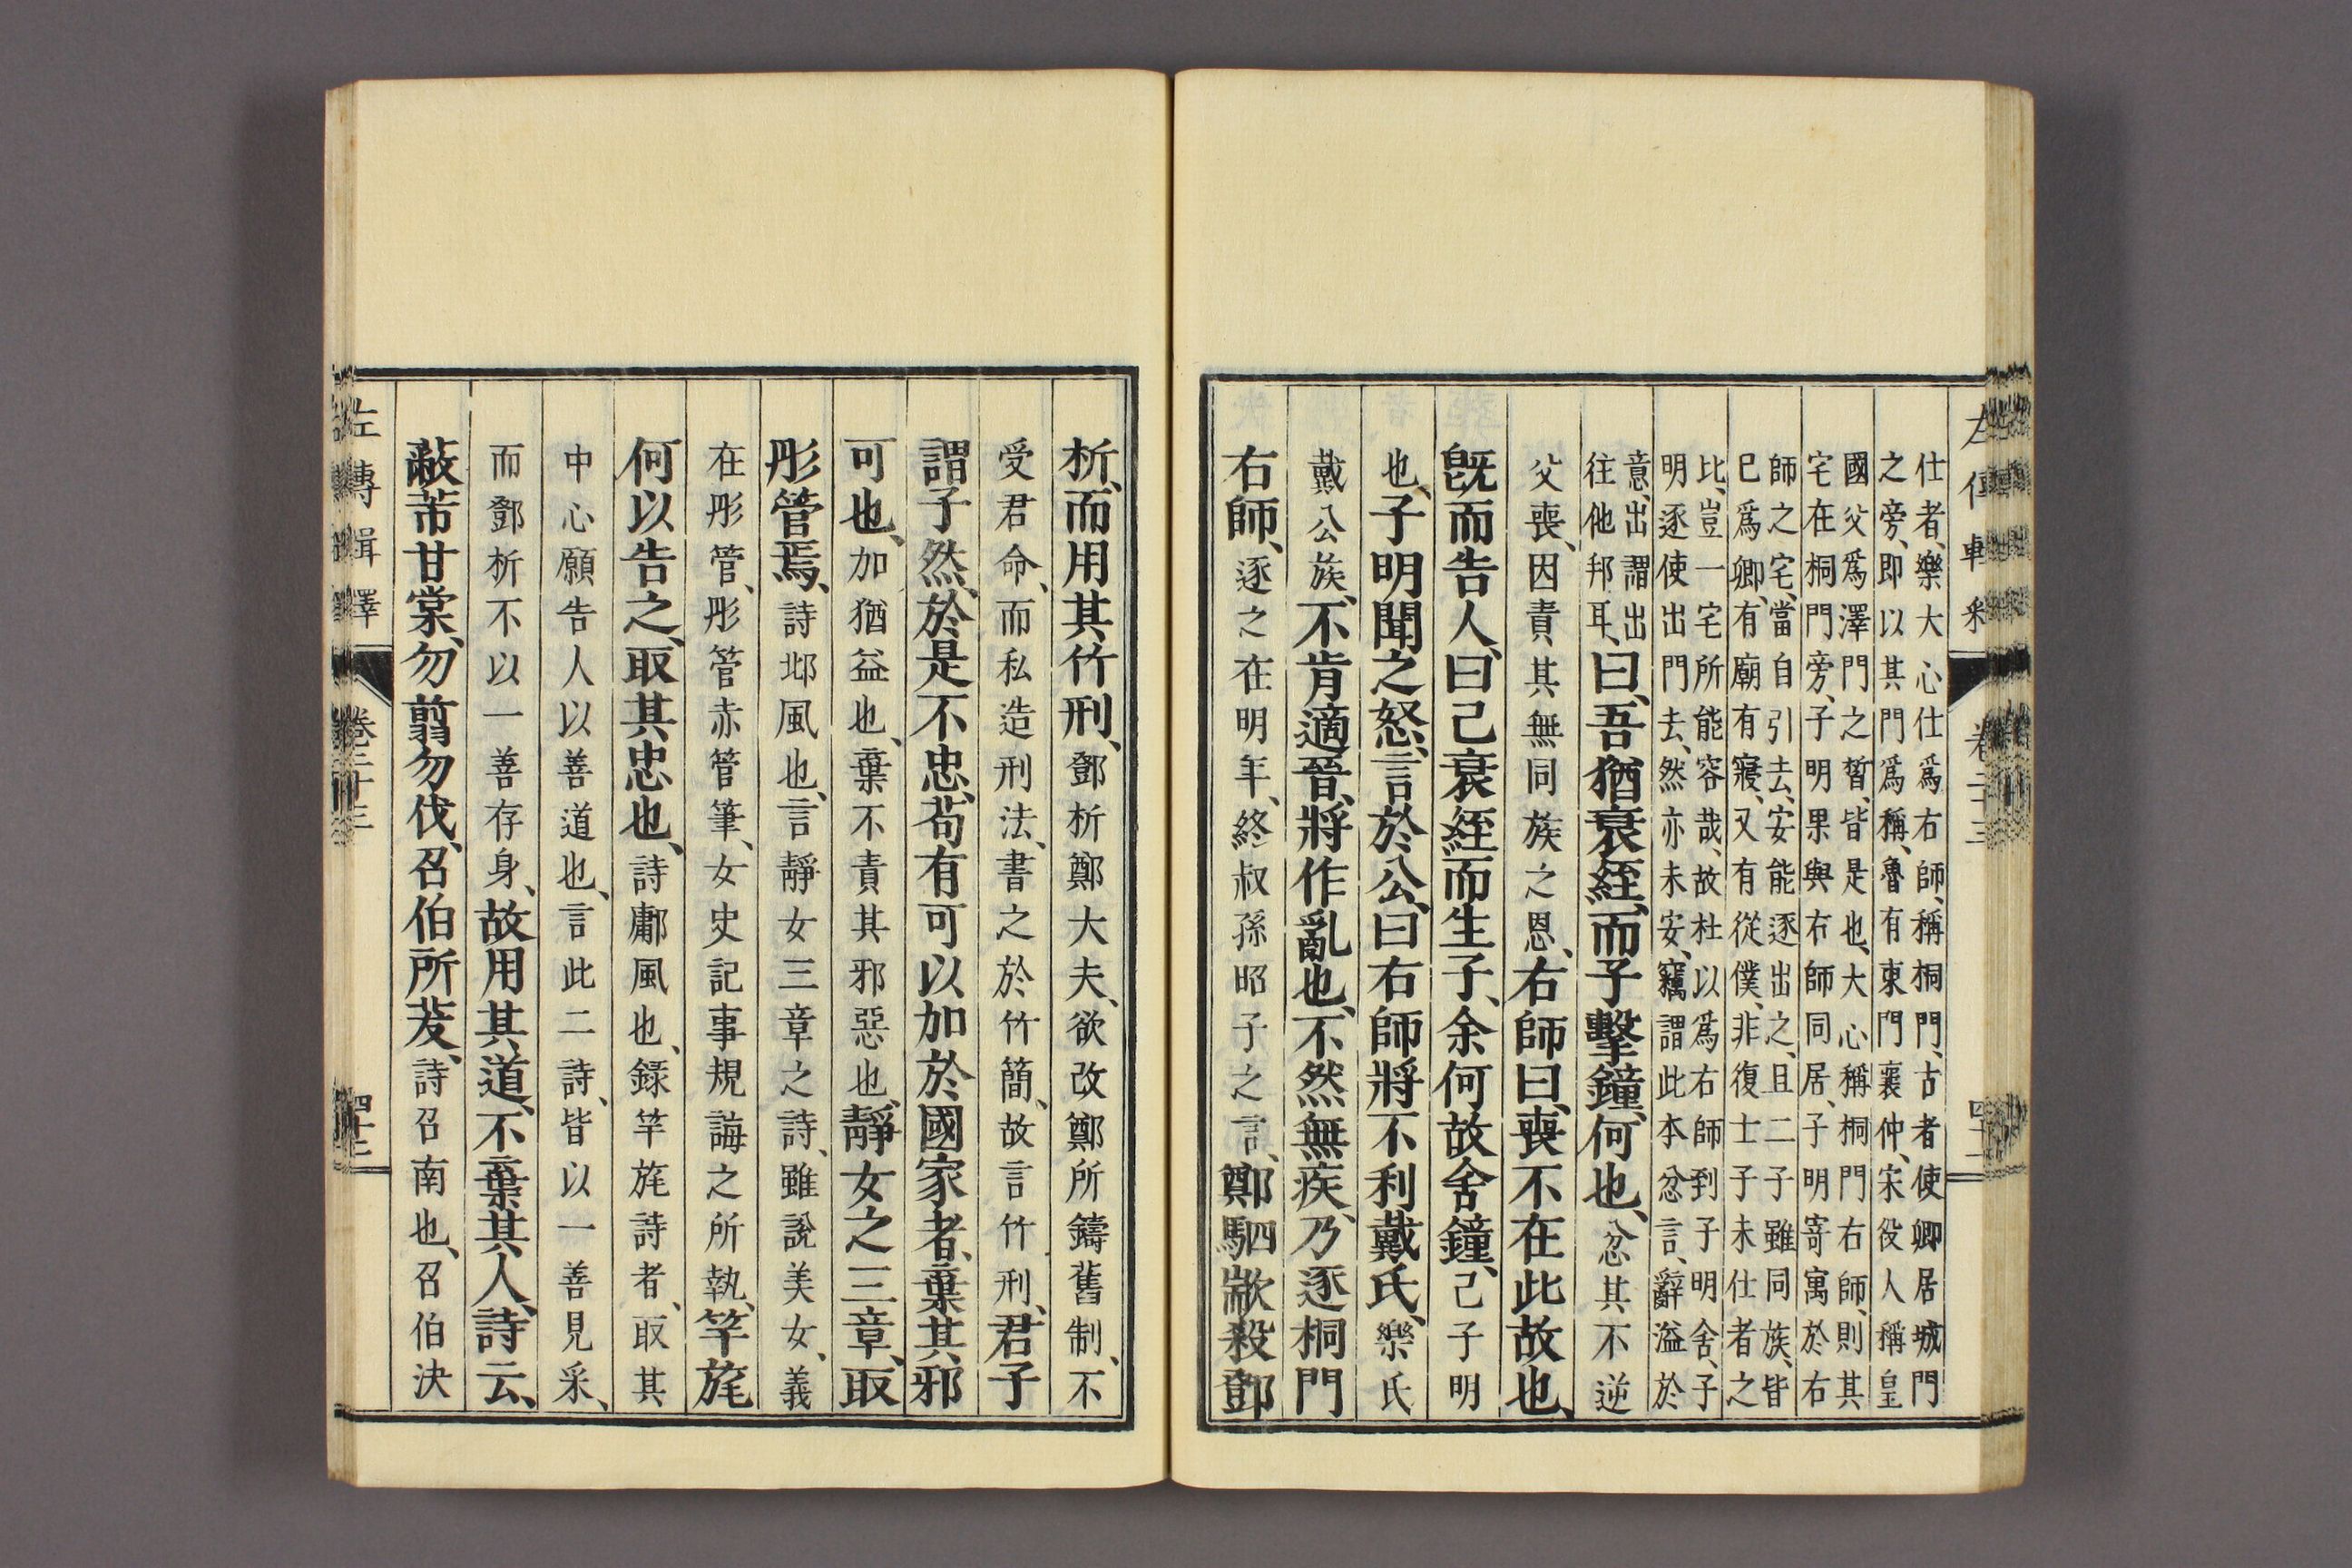 左傳輯釋 卷二十三 四十二
仕者、樂大心仕爲右師、稱桐門、古者使卿居城門
之旁、即以其門爲稱、魯有東門襄仲、宋役人稱皇
國父爲澤門之晳、皆是也、大心稱桐門右師、則其
宅在桐門旁、子明果與右師同居、子明寄寓於右
師之宅、當自引去、安能逐出之、且二子雖同族、皆
已爲卿、有廟有寢、又有從僕、非復士子未仕者之
比、豈一宅所能容哉、故杜以爲右師到子明舍、子
明逐使出門去、然亦未安、竊謂此本忿言、辭溢於
意、出謂出
往他邦耳、曰、吾猶衰絰、而子擊鐘、何也、忿其不逆
父喪、因責其無同族之恩、右師曰、喪不在此故也、
旣而告人、曰己衰絰而生子、余何故舍鐘、己子明
也、子明聞之怒、言於公、曰右師將不利戴氏、樂氏
戴公族、不肯適晉、將作亂也、不然無疾、乃逐桐門
右師、逐之在明年、終叔孫昭子之言、鄭駟歂殺鄧
析、而用其竹刑、鄧析鄭大夫、欲改鄭所鑄舊制、不
受君命、而私造刑法、書之於竹簡、故言竹刑、君子
謂子然、於是不忠、苟有可以加於國家者、棄其邪
可也、加猶益也、棄不責其邪惡也、靜女之三章、取
彤管焉、詩邶風也、言靜女三章之詩、雖說美女、義
在彤管、彤管赤管筆、女史記事規誨之所執、竿旄
何以告之、取其忠也、詩鄘風也、錄竿旄詩者、取其
中心願告人以善道也、言此二詩、皆以一善見采、
而鄧析不以一善存身、故用其道、不棄其人、詩云、
蔽芾甘棠、勿翦勿伐、召伯所茇、詩召南也、召伯決
左傳輯釋 卷二十三 四十二